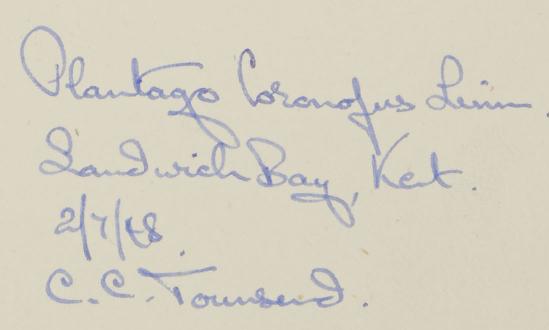 Plantago Coronopus Linn.
Sandwich Bay, Kent.
2/7/48.
C. C. Townsend.